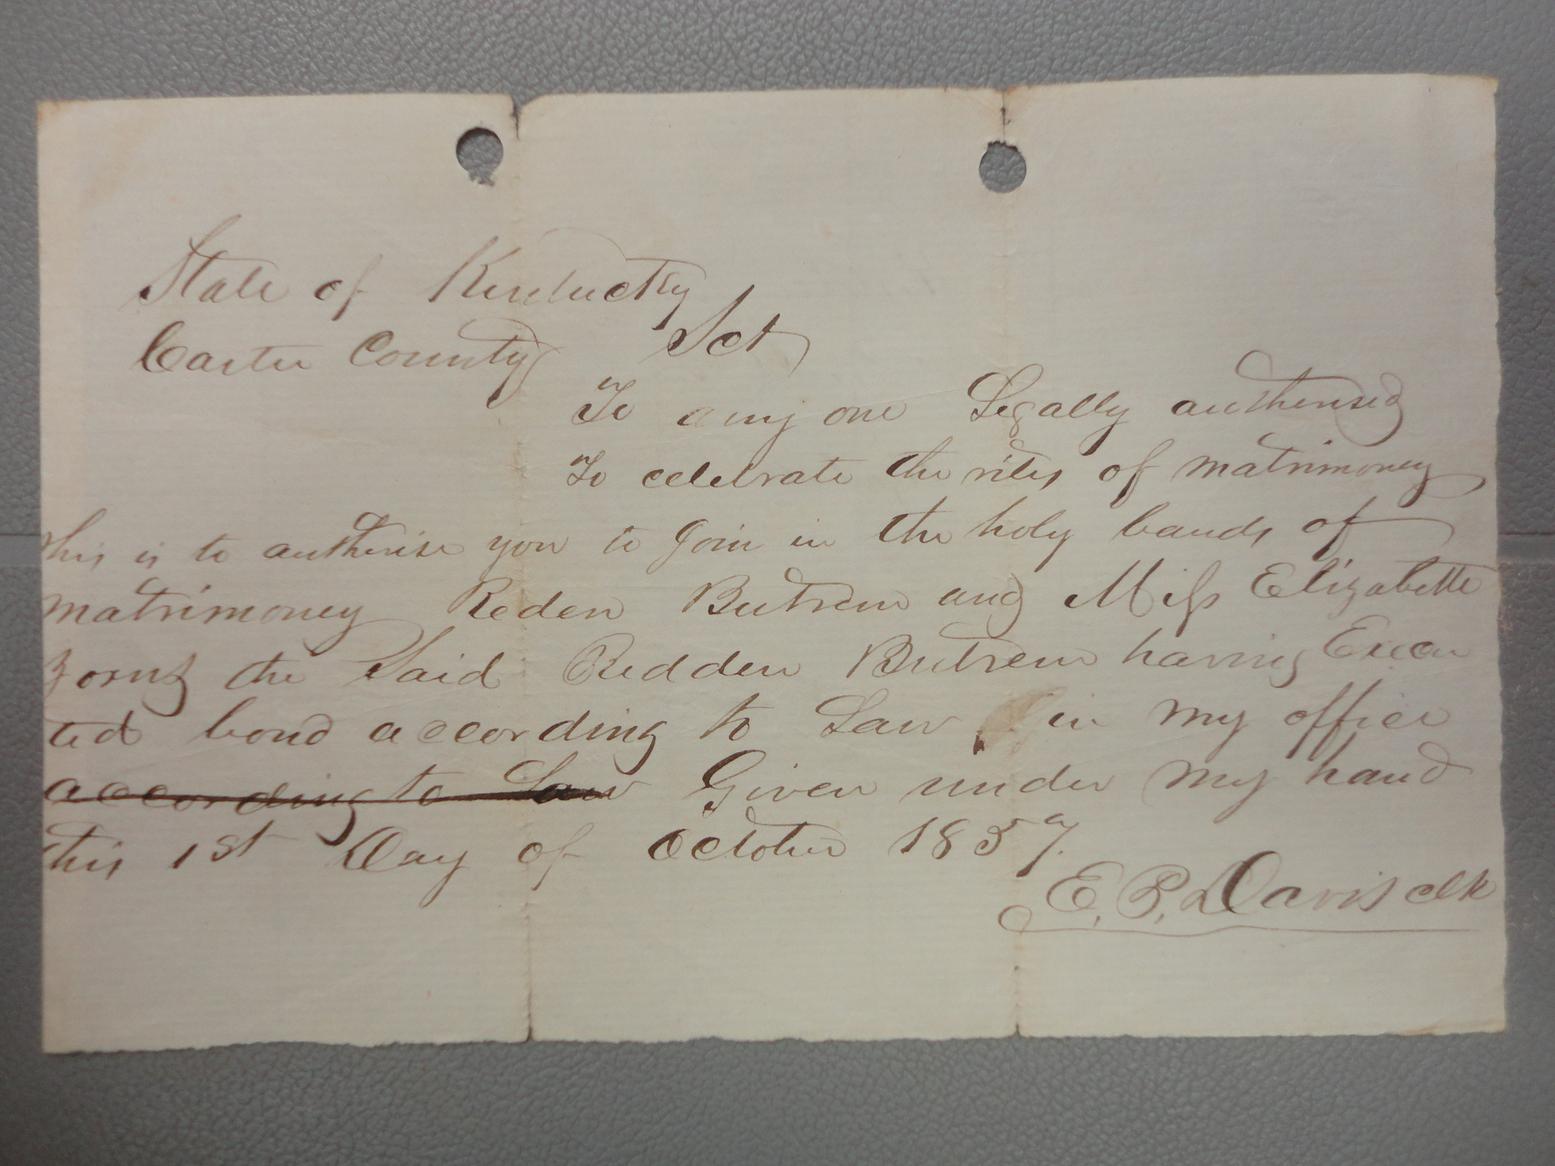 State of Kentucky
Carter County Sct
To any one Legally authorised
To celebrate the rites of matrimoney
this is to authorise you to Join in the holy bands of
matrimoney Reden Butrem and Miss Elizabeth
the Said Redden Butrem having Execu
ted bond according to Law in my office
according to Law Given under my hand
this 1st Day of October 1857
E. P. Davis clk